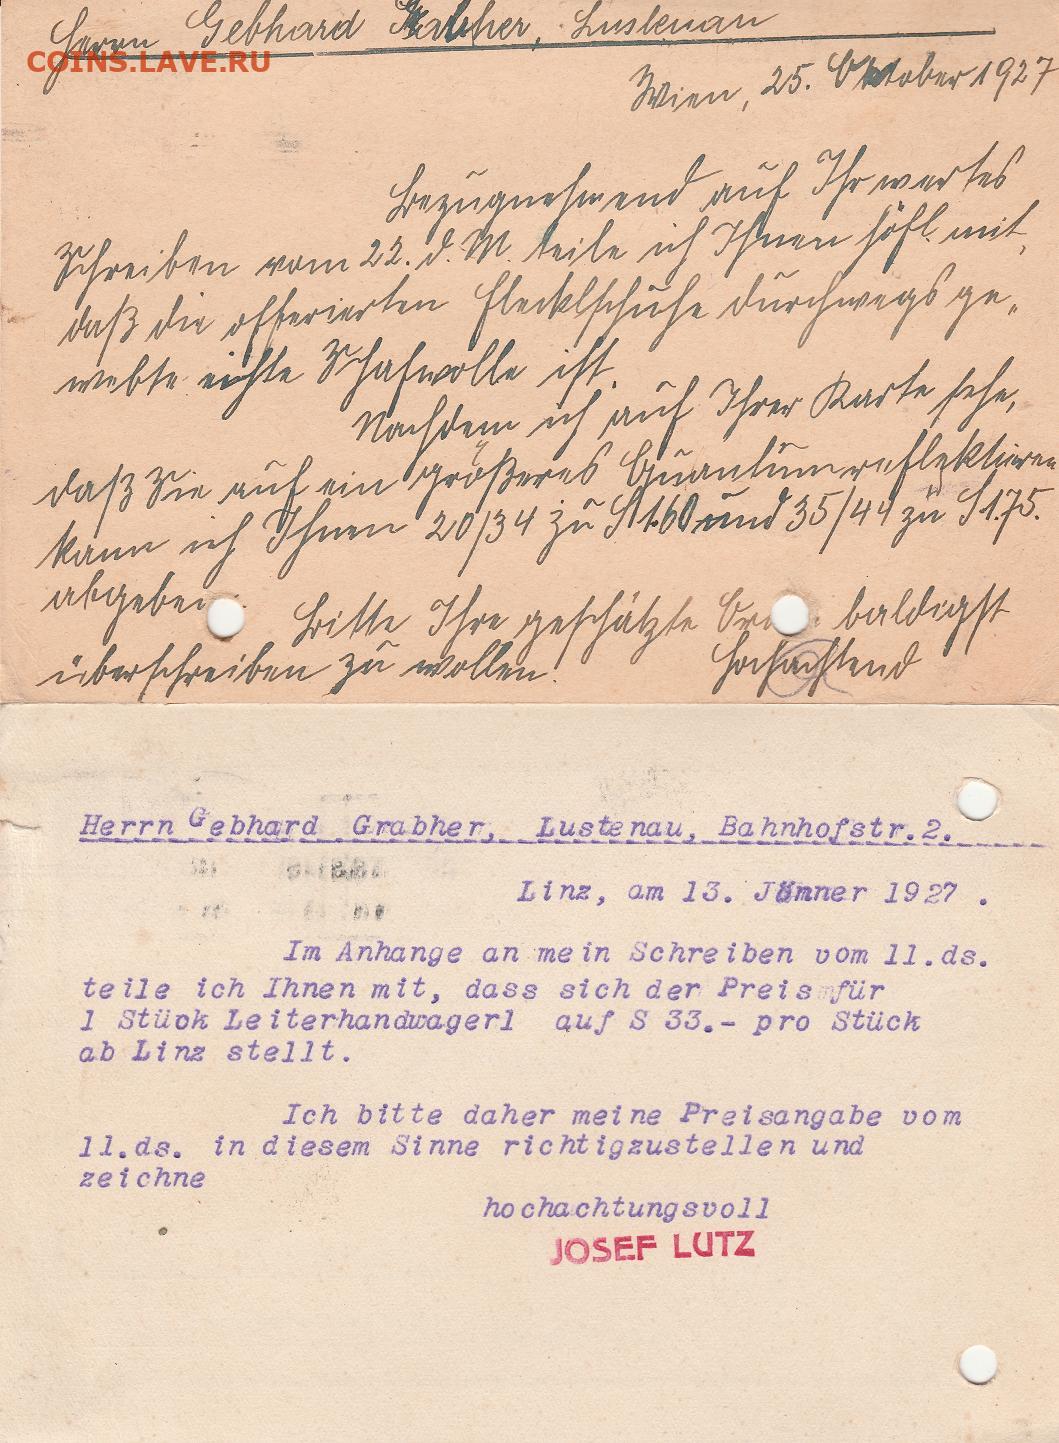 Herrn Gebhard Grabher, Lustenau
COINS.LAVE.RU
Wien, 25. Oktober 1927
Bezugnehmend auf Ihr wertes
Schreiben vom 22. d. M. teile ich Ihnen höfl. mit,
daß die offerierten Flecklschuhe durchwegs ge„
webte echte Schafwolle ist.
Nachdem ich auf Ihrer Karte sehe,
daß Sie auf ein größeres Quantum reflektieren
kann ich Ihnen 20/34 zu S 1.60 und 35/44 zu S 1.75.
abgeben.
Bitte Ihre geschätzte baldigst
überschreiben zu wollen.
Hochachtend
Herrn Gebhard Grabher, Lustenau, Bahnhofstr.2.
Linz, am 13. Jänner 1927 .
Im Anhange an mein Schreiben vom 11.ds.
teile ich Ihnen mit, dass sich der Preis für
1 Stück Leiterhandwagerl auf S 33.- pro Stück
ab Linz stellt.
Ich bitte daher meine Preisangabe vom
11.ds. in diesem Sinne richtigzustellen und
zeichne
hochachtungsvoll
JOSEF LUTZ